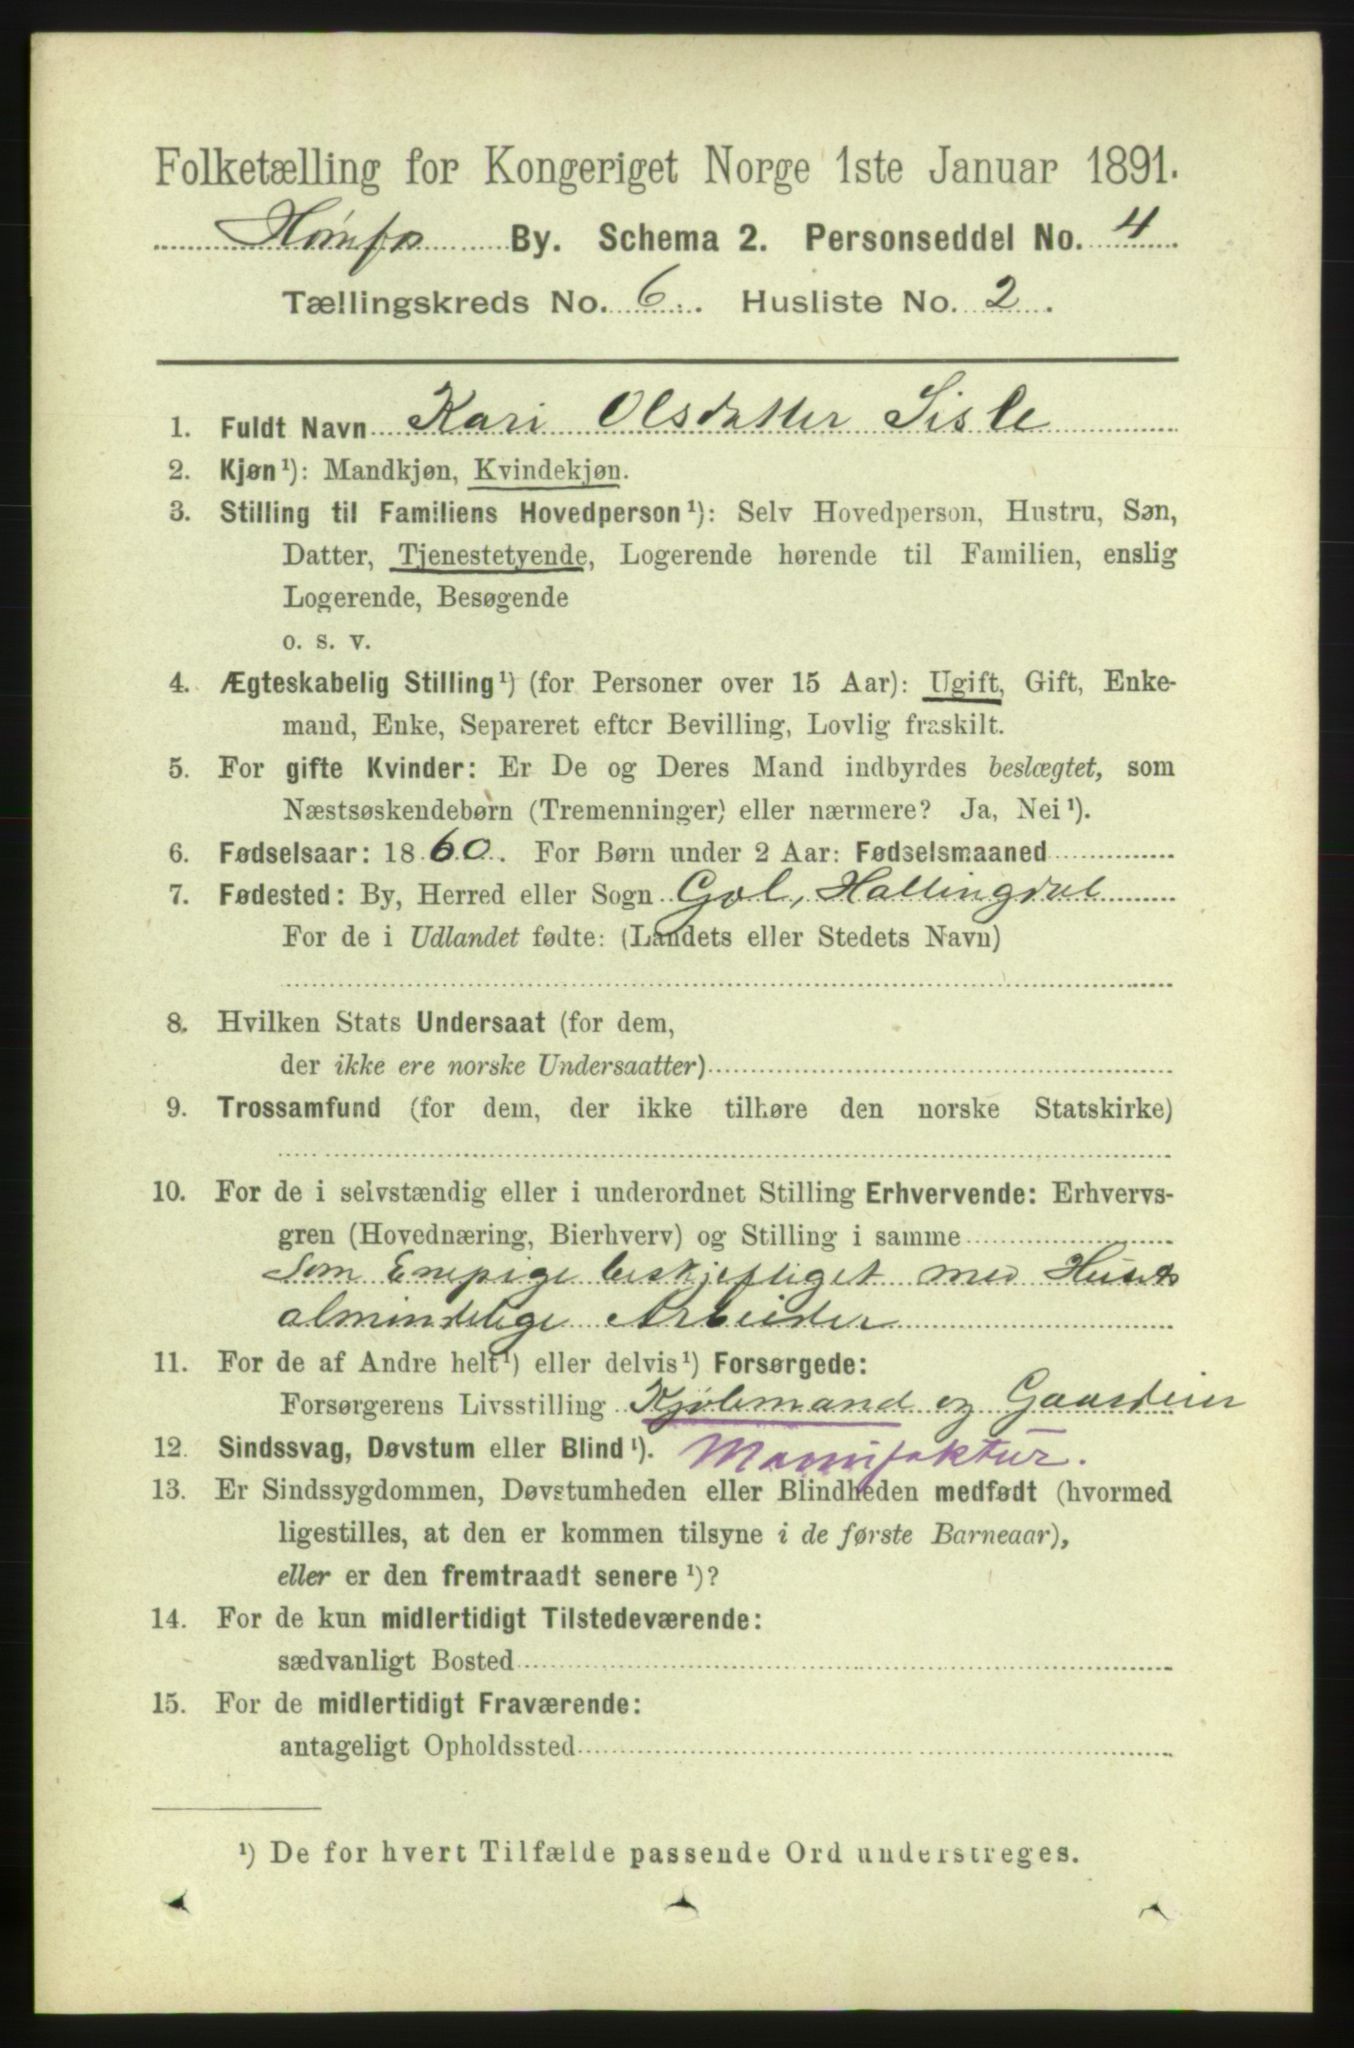 Folketælling for Kongeriget Norge 1ste Januar 1891.
Hønefos By. Schema 2. Personseddel No. 4
Tællingskreds No. 6. Husliste No. 2.
1. Fuldt Navn Kari Olsdatter Sisle
2. Kjøn¹): Mandkjøn, Kvindekjøn.
3. Stilling til Familiens Hovedperson¹): Selv Hovedperson, Hustru, Søn,
Datter, Tjenestetyende, Logerende hørende til Familien, enslig
Logerende, Besøgende
o. s. v.
4. Ægteskabelig Stilling¹) (for Personer over 15 Aar): Ugift, Gift, Enke-
mand, Enke, Separeret efter Bevilling, Lovlig fraskilt.
5. For gifte Kvinder: Er De og Deres Mand indbyrdes beslægtet, som
Næstsøskendebørn (Tremenninger) eller nærmere? Ja, Nei¹).
6. Fødselsaar: 1860. For Børn under 2 Aar: Fødselsmaaned
7. Fødested: By, Herred eller Sogn Gol, Hallingdal
For de i Udlandet fødte: (Landets eller Stedets Navn)
8. Hvilken Stats Undersaat (for dem,
der ikke ere norske Undersaatter)
9. Trossamfund (for dem, der ikke tilhøre den norske Statskirke)
10. For de i selvstændig eller i underordnet Stilling Erhvervende: Erhvervs-
gren (Hovednæring, Bierhverv) og Stilling i samme
Som Enepige beskjeftiget med Husets
almindelige Arbeider
11. For de af Andre helt¹) eller delvis¹) Forsørgede:
Forsørgerens Livsstilling Kjøbmand og Gaardeier
12. Sindssvag, Døvstum eller Blind¹). Manufaktur.
13. Er Sindssygdommen, Døvstumheden eller Blindheden medfødt (hvormed
ligestilles, at den er kommen tilsyne i de første Barneaar),
eller er den fremtraadt senere¹)?
14. For de kun midlertidigt Tilstedeværende:
sædvanligt Bosted
15. For de midlertidigt Fraværende:
antageligt Opholdssted
¹) De for hvert Tilfælde passende Ord understreges.